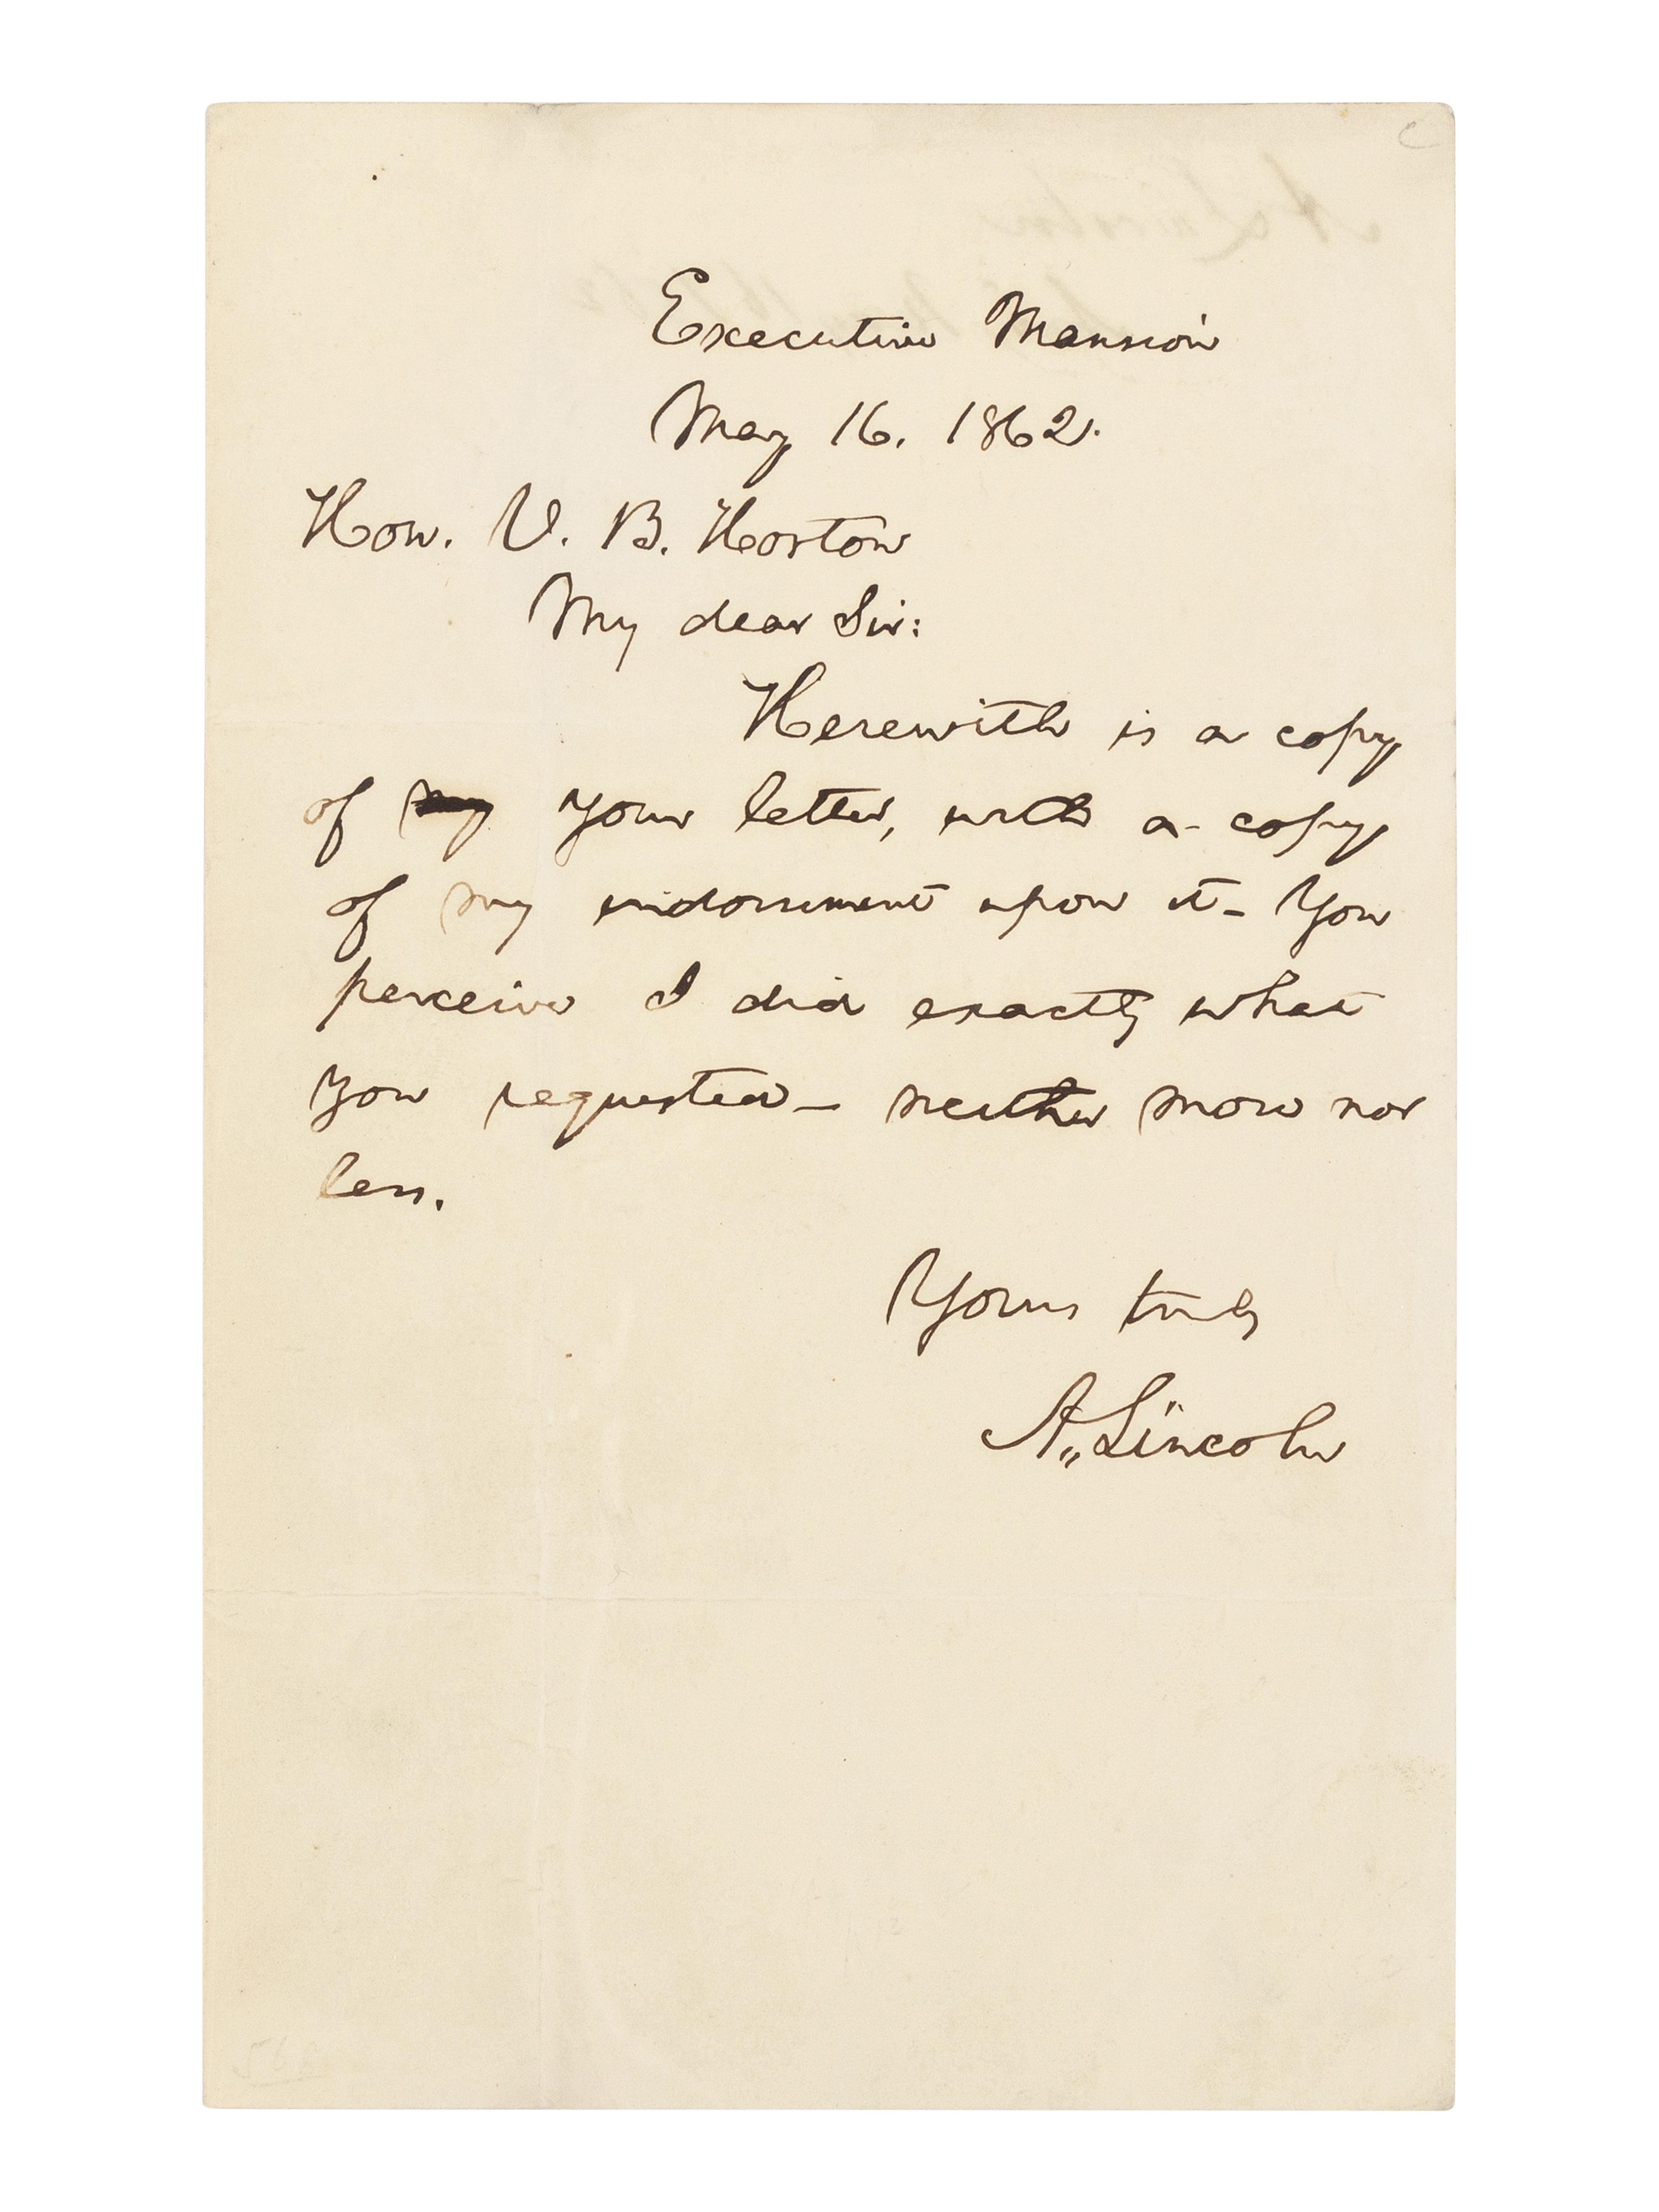 Executive Mansion
May 16. 1862.
Hon. V. B. Horton
My dear Sir:
Herewith is a copy
of my your letter, with a copy
of my endorsement upon it— You
perceive I did exactly what
you requested— neither more nor
less.
Yours truly
A. Lincoln